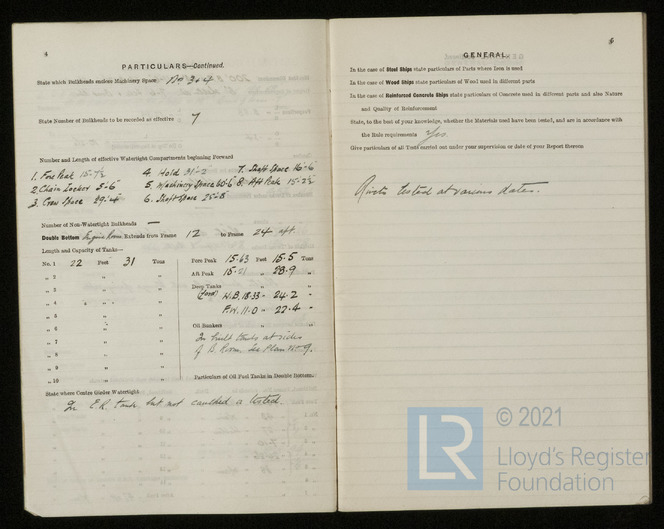 4
PARTICULARS—Continued.
State which Bulkheads enclose Machinery Space No 3 & 4
State Number of Bulkheads to be recorded as effective 7
Number and Length of effective Watertight Compartments beginning Forward
1. Fore Peak 15-7½ 4. Hold 31-2 7. Shaft Space 16-6
2 Chain Locker 5-6 5. Machinery Space 8. Aft Peak 15-2½
3. Crew Space 29-4 6. Shaft Space 25-8
Number of Non-Watertight Bulkheads —
Double Bottom Engine Room Extends from Frame 12 to Frame 24 aft
Length and Capacity of Tanks—
No. 1 22 Feet 31 Tons
„ 2 „ „
„ 3 „ „
„ 4 „ „
„ 5 „ „
„ 6 „ „
„ 7 „ „
„ 8 „ „
„ 9 „ „
„ 10 „ „
Fore Peak 15.63 Feet 15.5 Tons
Aft Peak „ 28.9 „
Deep Tanks
(Ford) W.B. 18.33 „ 24.2 „
F.W. 11.0 „ 22.4 „
Oil Bunkers „ „
In built tanks at sides
of B. Room, See Plan No 9.
Particulars of Oil Fuel Tanks in Double Bottom.
State where Centre Girder Watertight
In E.R. tank but not caulked & tested.
5
GENERAL
In the case of Steel Ships state particulars of Parts where Iron is used
In the case of Wood Ships state particulars of Wood used in different parts
In the case of Reinforced Concrete Ships state particulars of Concrete used in different parts and also Nature
and Quality of Reinforcement
State, to the best of your knowledge, whether the Materials used have been tested, and are in accordance with
the Rule requirements Yes
Give particulars of all Tests carried out under your supervision or date of your Report thereon
Rivets tested at various dates.
LR
© 2021
Lloyd's Register
Foundation